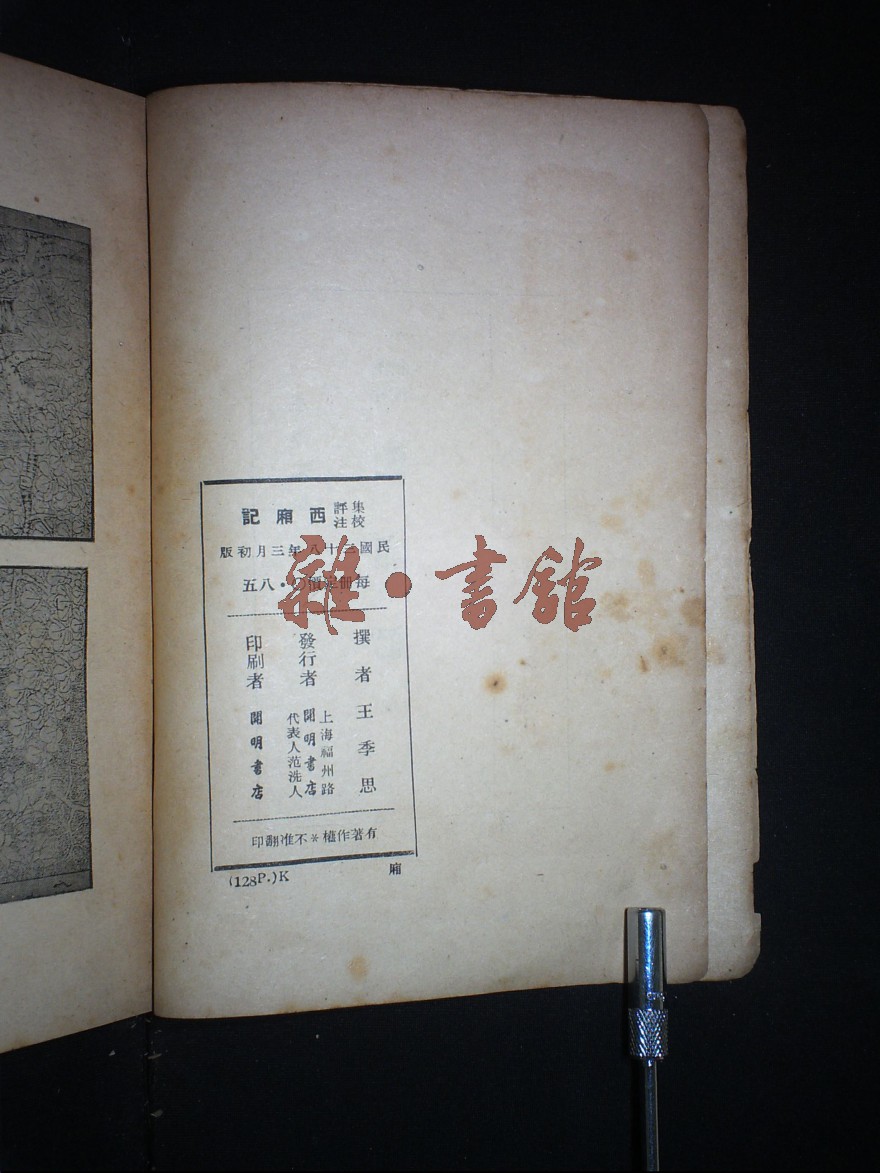 集評校注西廂記
民國三十八年三月初版
每冊定價〇・八五
撰者 王季思
發行者 上海福州路
開明書店
代表人范洗人
印刷者 開明書店
有著作權*不准翻印
(128P.)K
廂
雜・書館